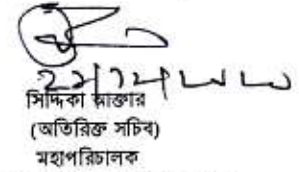 সিদ্দিকা আক্তার
(অতিরিক্ত সচিব)
মহাপরিচালক